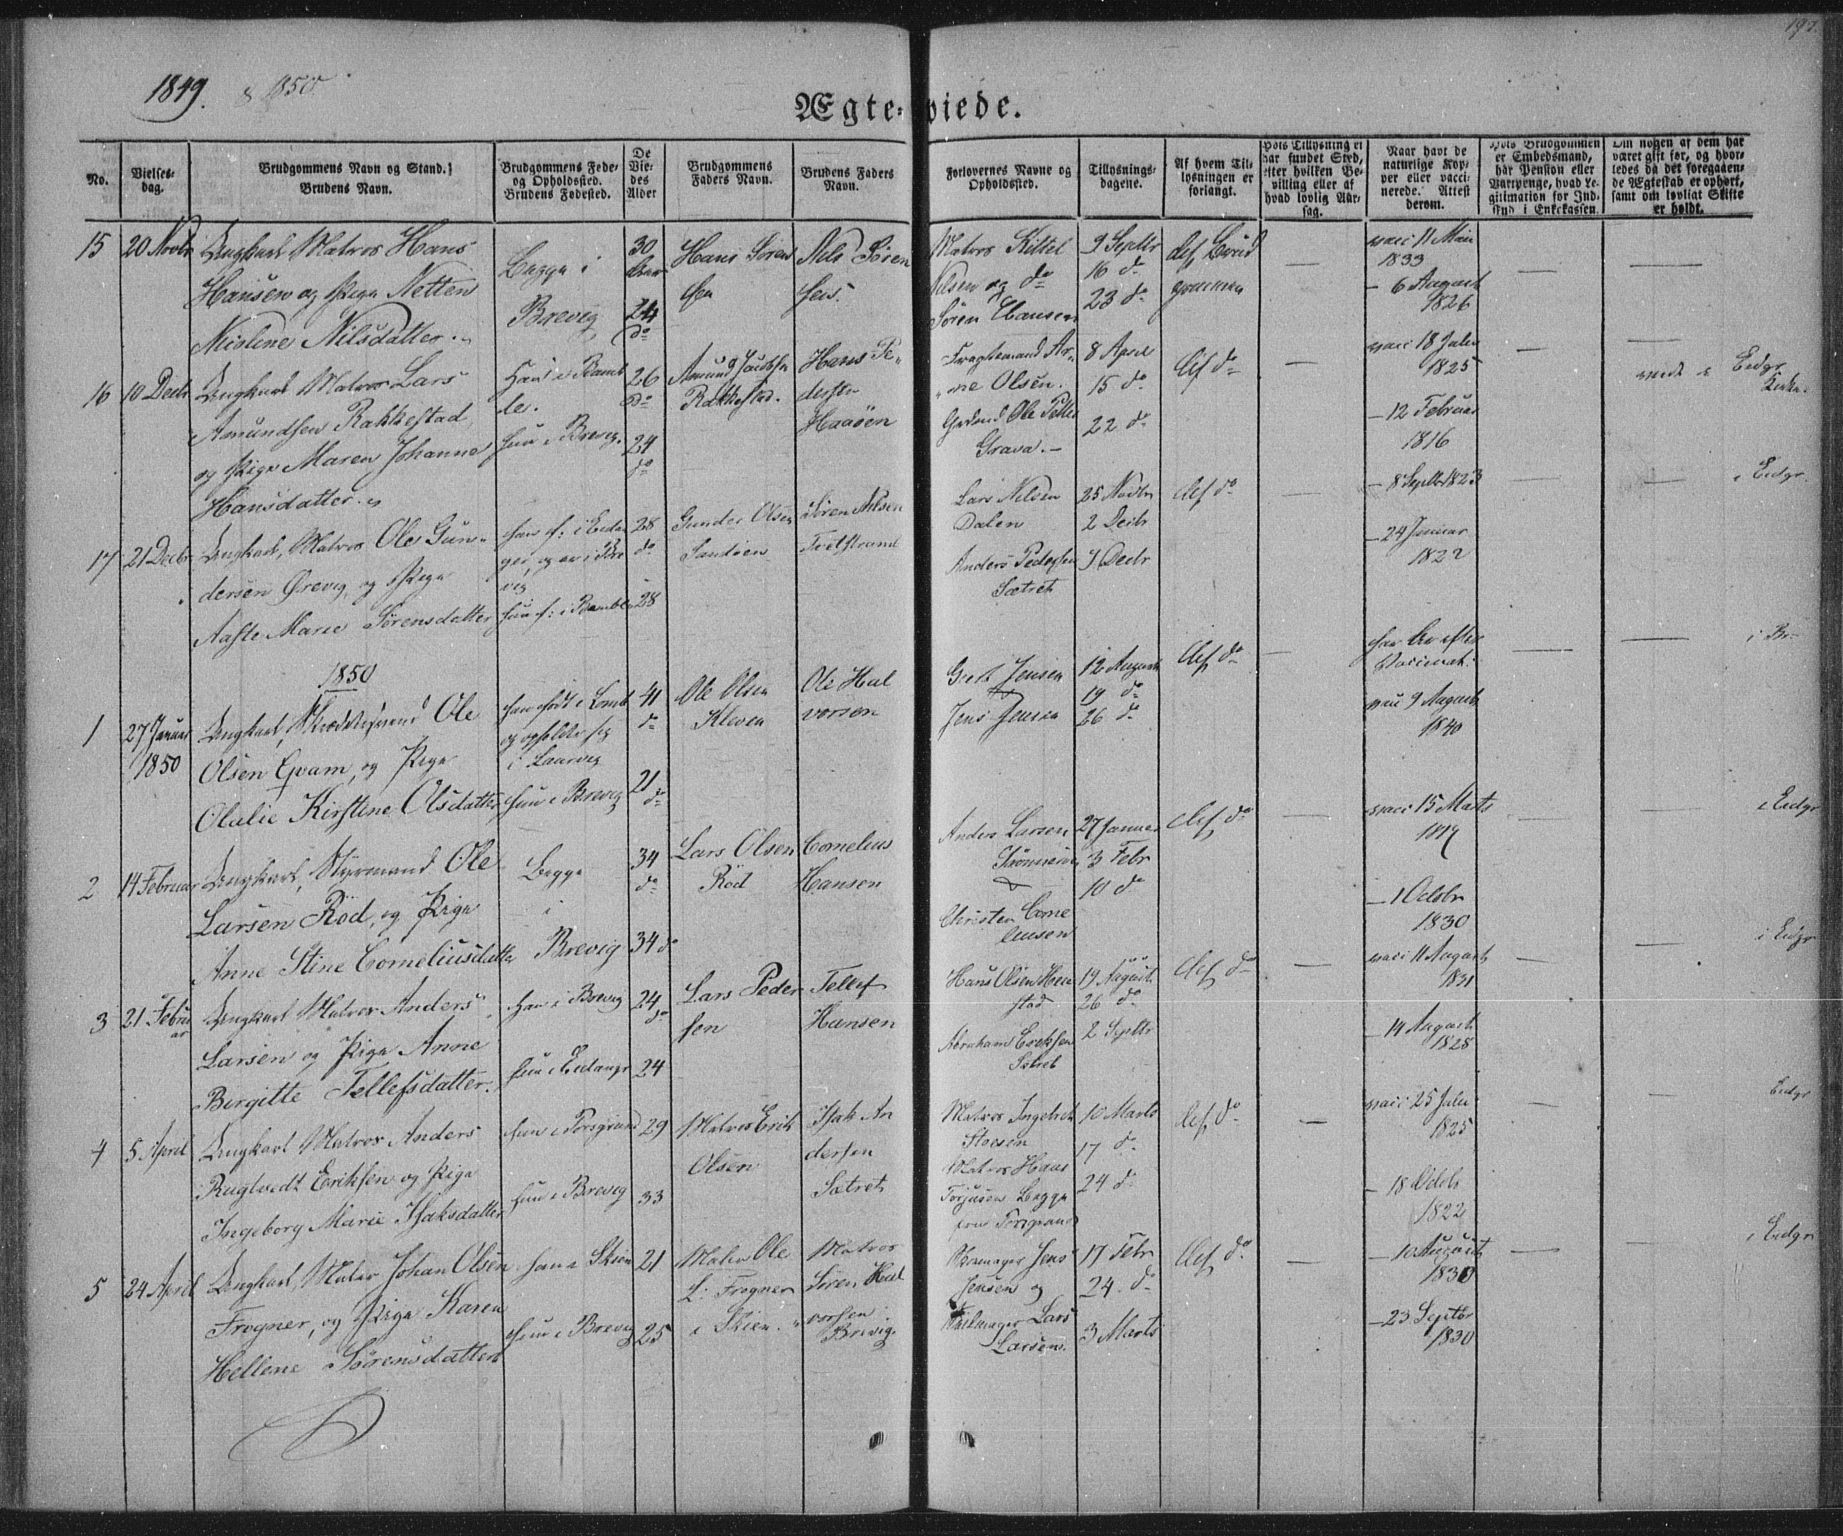 1849. & 1850.
197.
Ægte-viede.
No.
Vielses-
dag.
Brudgommens Navn og Stand.}
Brudens Navn.
Brudgommens Føde-
og Opholdssted.
Brudens Fødested.
De
Vie-
des
Alder
Brudgommens
Faders Navn.
Brudens Faders
Navn.
Forlovernes Navne og
Opholdssted.
Tillysnings-
dagene.
Af hvem Til-
lysningen er
forlangt.
Hvis Tillysning ei
har fundet Sted,
efter hvilken Be-
villing eller af
hvad lovlig Aar-
sag.
Naar havt de
naturlige Kop-
per eller vacci-
nerede. Attest
derom.
Hvis Brudgommen
er Embedsmand,
har Pension eller
Vartpenge, hvad Le-
gitimation for Ind-
skud i Enkekassen.
Om nogen af dem har
været gift før, og hvor-
ledes da det foregaaen-
de Ægteskab er ophørt,
samt om lovligt Skifte
er holdt.
15
20 Novbr
Ungkarl Matros Hans
Hansen og Pige Netten
Nicoline Nilsdatter.
Begge i
Brevig
30
Aar
24
do
Hans Søren
sen
Nils Søren
sen.
Matros Kittel
Nilsen og do
Søren Hansen
9 Septbr
16 do
23 do
Af Brud
gommen
vacc 11 Mai
1833
— 6 August
1826
16
10 Decbr
Ungkarl Matros Lars
Amundsen Rakkestad
og Pige Maren Johanne
Hansdatter.
Han i Bamb
le.
hun i Brevig.
26
do
24
do
Amund Jacobsen
Rakkestad.
Hans Pe-
dersen
Haaøen
Fragtemand Ar-
ne Olsen.
Ole Petter
Grava.
8 April
15 do
22 do
Af do
vacc 18 Julii
1825
— 12 Februar
1816
viede i Eidgr
Kirke.
17
21 Decbr
Ungkarl, Matros Ole Gun-
dersen Ørevig, og Pige
Aaste Marie Sørensdatter
han f: i Eidan
ger, og er i Bre
vig
hun f: i Bamble
28
do
28
Gunder Olsen
Sandøen
Søren Nilsen
Tveitstrand
Lars Nilsen
Dalen
Anders Pedersen
Sætret
25 Novbr
2 Decbr
9 Decbr
Af do
— 8 Septbr 1823
— 24 Januar
1822
i Eidgr.
1850
1
27 Januar
1850
Ungkarl, Skrædersvend Ole
Olsen Qvam, og Pige
Olalie Kirstine Olsdatter
han født i Lomb
og opholder sig
i Laurvig
hun i Brevig
41
do
21
do
Ole Olsen
Kleven
Ole Hal
vorsen
Gert Jensen
Jens Jensen
12 August
19 do
26 do
Af do
har Ar efter
Vaccinat.
vacc 9 August
1840
i Br
2
14 Februar
Ungkarl, Styrmand Ole
Larsen Röd, og Pige
Anne Stine Corneliusdatter
Begge
i
Brevig
34
do
34 do
Lars Olsen
Röd
Cornelius
Hansen
Anders Larsen
Christen Corne
liusen
27 Januar
3 Febr
10 do
Af do
vacc 15 Marts
1819
— 1 Octobr
1830
i Eidgr
3
21 Febru
ar
Ungkarl Matros Anders
Larsen og Pige Anne
Birgitte Tellefsdatter.
Han i Brevig
hun i Eidangr
24
do
24
Lars Peder
sen
Tellef
Hansen
Hans Olsen Hei
stad
Abraham Eriksen
Sætret
19 August
26 do
2 Septbr
Af do
vacc 11 August
1831
— 14 August
1828
i Eidgr
4
5 April
Ungkarl Matros Anders
Rugtvedt Eriksen og Pige
Ingeborg Marie Isaksdatter
han i Porsgrund
hun i Brevig
29
33
Matros Erik
Olsen
Isak An
dersen
Sætret
Matros Ingebret
Stoesen
Matros Hans
Torjusen Begge
fra Porsgrund
10 Marts
17 do
24 do
Af do
vacc 25 Julii
1825
— 18 Octob
1822
Eidgr
5
24 April
Ungkarl, Matros Johan Olsen
Frogner, og Pige Karen
Hellene Sørensdatter
han i Skien
hun i Brevig
21
25
Matros Ole
L: Frogner
i Skien.
Matros
Søren Hal
vorsen
Brevig.
Jens
Jensen og
Seilmager Lars
Larsen.
17 Febr
24 do
3 Marts
Af do
— 10 August
1830
— 23 Septbr
1830
i Eidgr